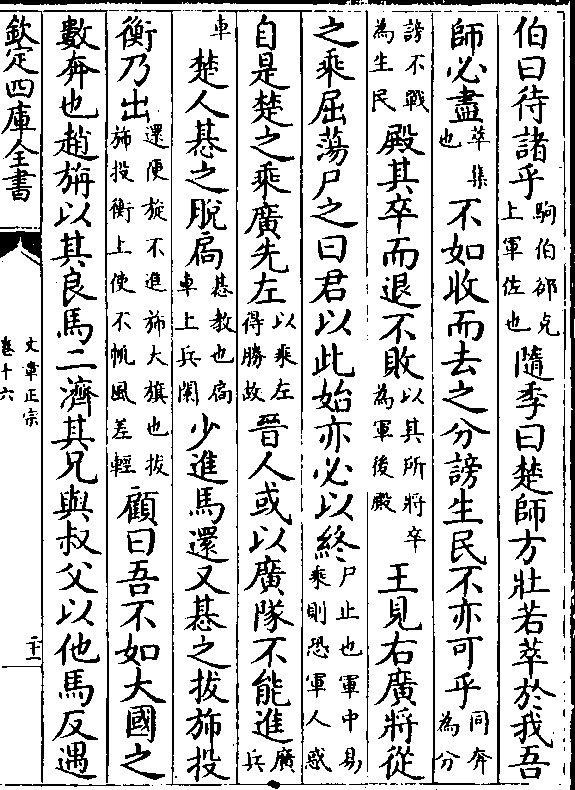 伯曰待諸乎駒伯郤克上軍佐也隨季曰楚師方壯若萃於我吾
師必盡萃集也不如收而去之分謗生民不亦可乎同奔為分
謗不戰為生民殿其卒而退不敗以其所將卒為軍後殿王見右廣將從
之乘屈蕩尸之曰君以此始亦必以終尸止也軍中易乘則恐軍人惑
自是楚之乘廣先左以乘左得勝故晉人或以廣隊不能進廣兵
車楚人惎之脫扃惎教也扃車上兵闌少進馬還又惎之拔斾投
衡乃出還便旋不進斾大旗也拔斾投衡上使不帆風差輕顧曰吾不如大國之
數奔也趙旃以其良馬二濟其兄與叔父以他馬反遇
欽定四庫全書
文章正宗
卷十六
二十一